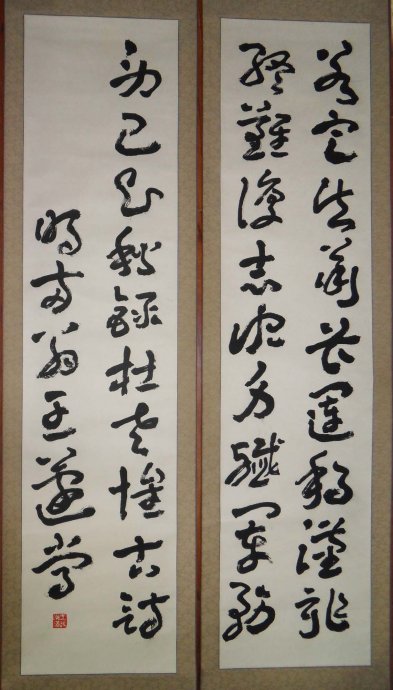 若定失蕭曹運移漢祚
終難復志決身殲軍務
勞己秋錄杜老懷古詩
明兩翁王蘧常